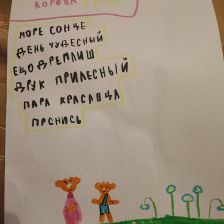 КОРОВА
МОРЕ СОНЦЕ
ДЕНЬ ЧУДЕСНЫЙ
ЕЩО ДРЕМЛИШ
ДРУК ПРИЛЕСНЫЙ
ПАРА КРАСАВЦА
ПРСНИСЬ